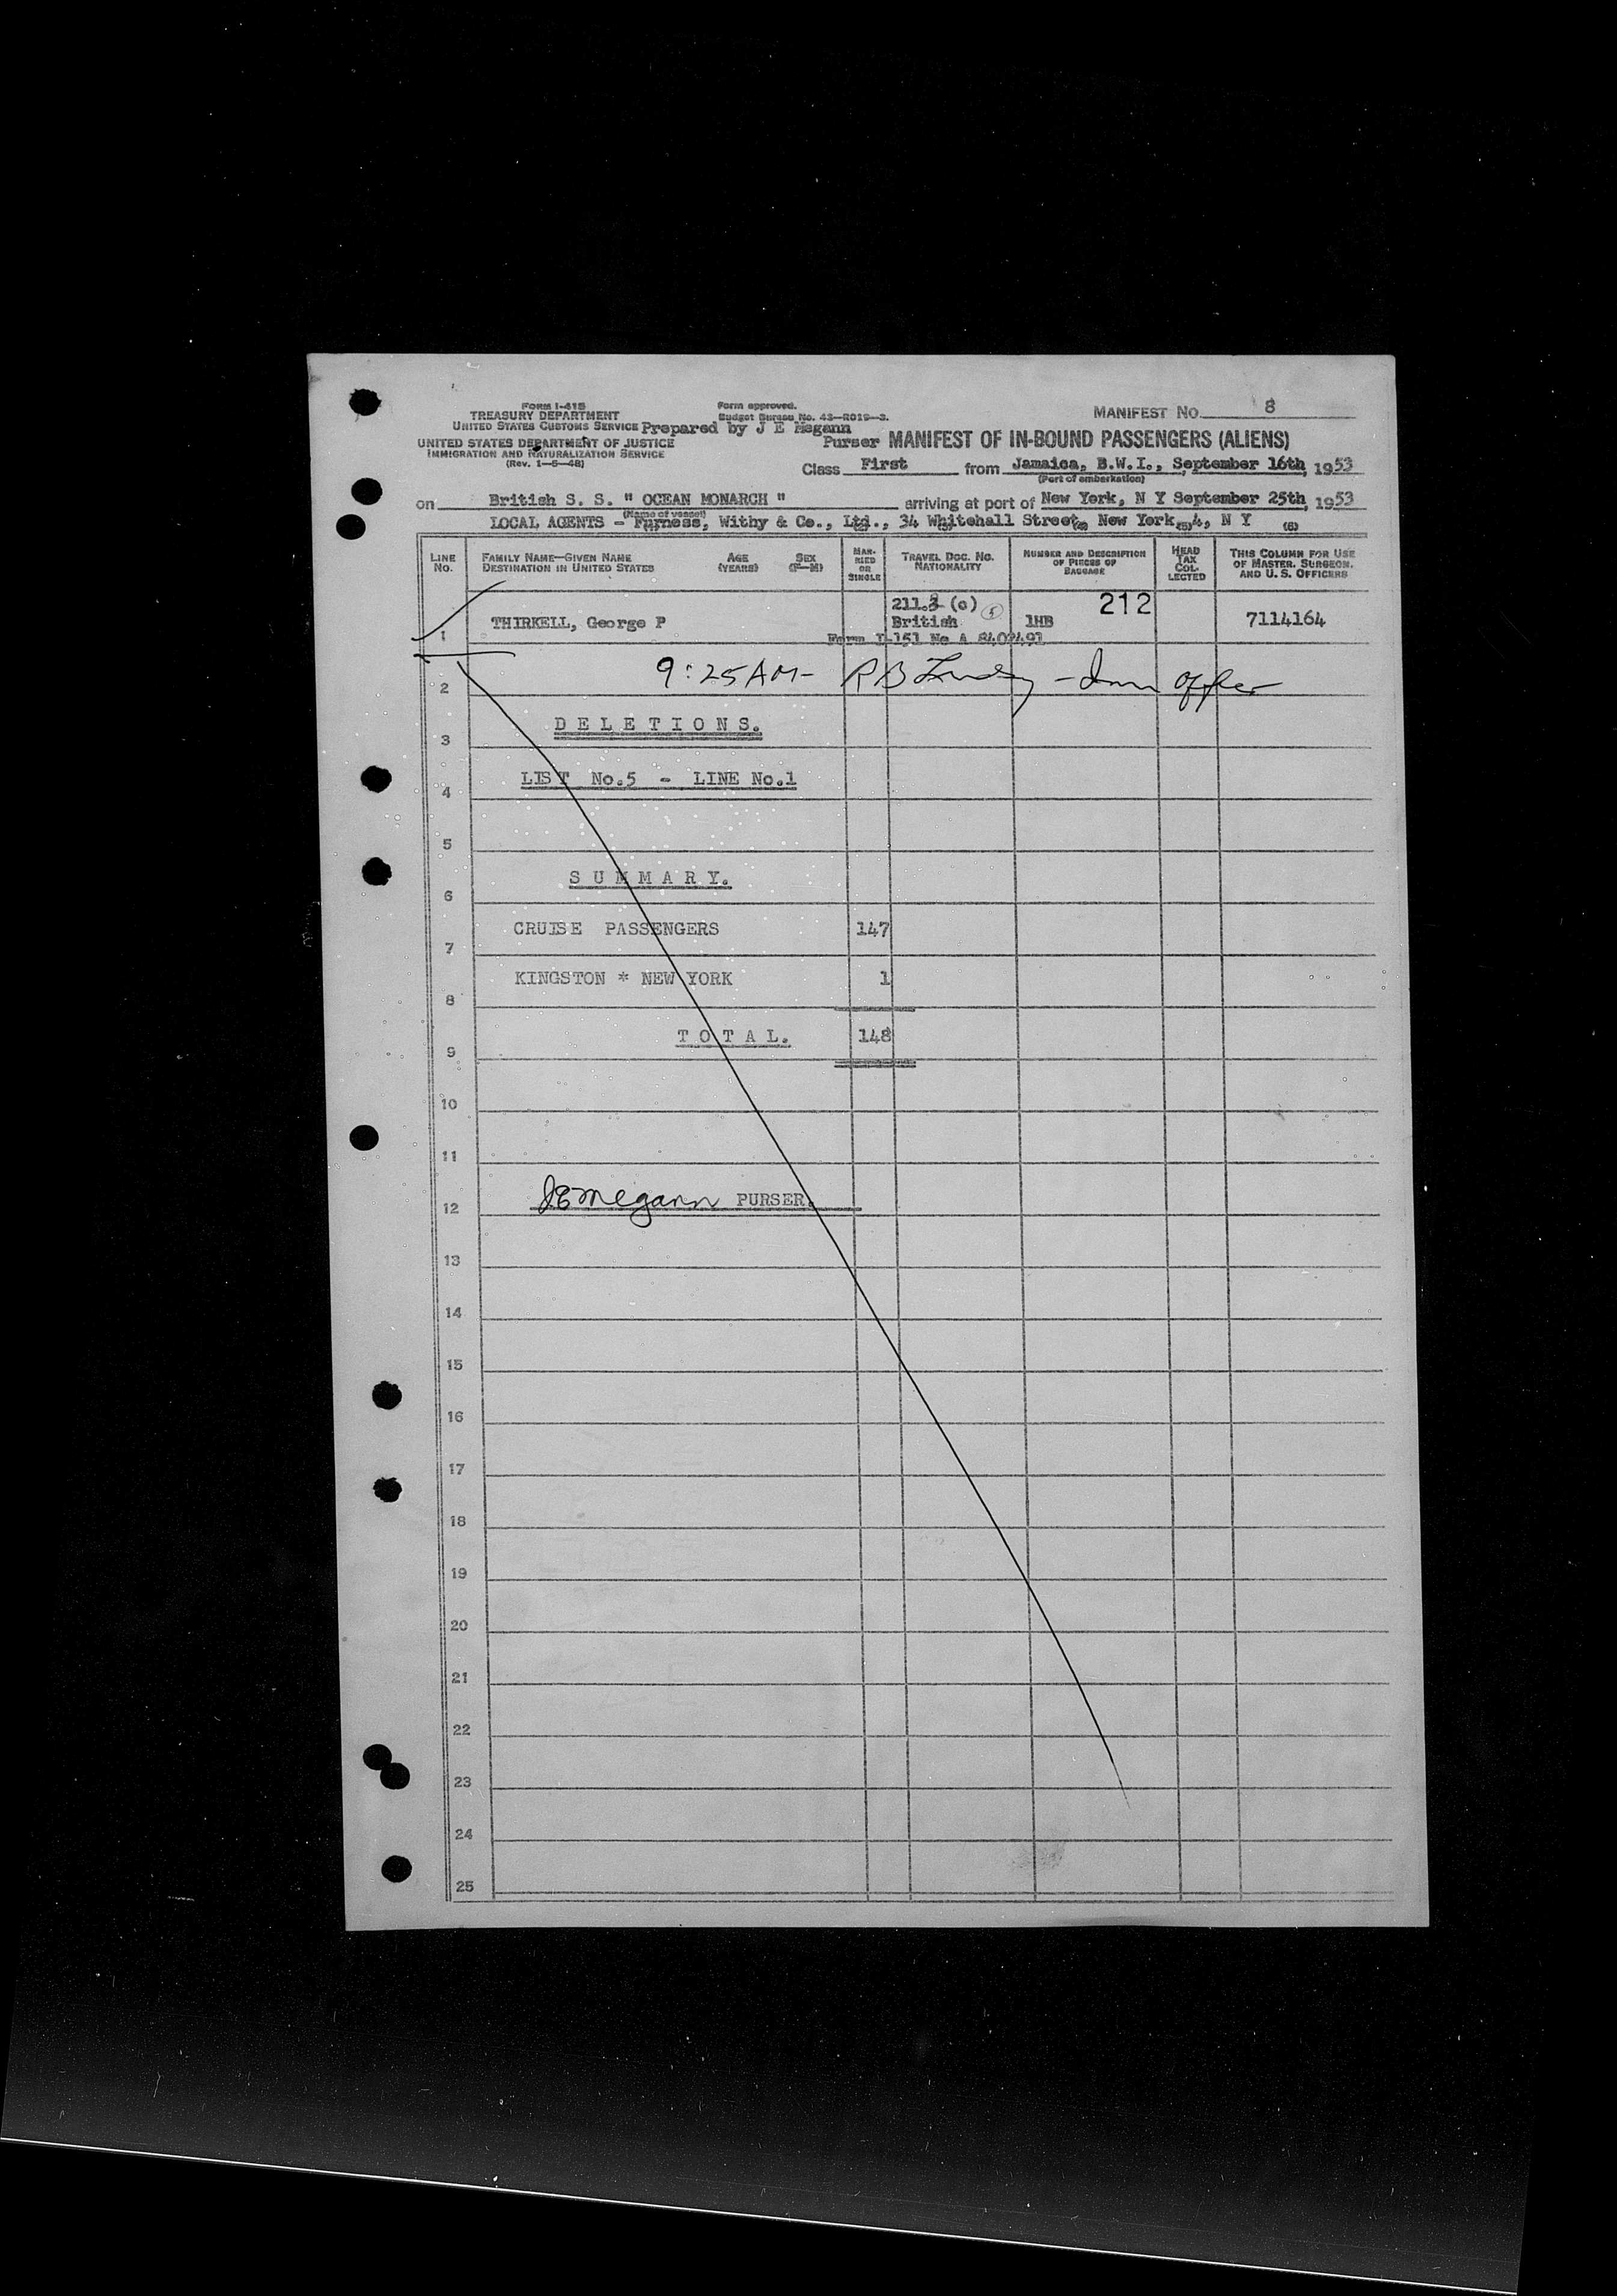 FORM I-415
TREASURY DEPARTMENT
UNITED STATES CUSTOMS SERVICE
UNITED STATES DEPARTMENT OF JUSTICE
IMMIGRATION AND NATURALIZATION SERVICE
(Rev. 1-5-48)
Form approved.
Budget Bureau No. 43-R019-3.
Prepared by J E Megann
Purser
MANIFEST No. 8
MANIFEST OF IN-BOUND PASSENGERS (ALIENS)
Class First from Jamaica, B.W.I., September 16th, 1953
(Port of embarkation)
on British S. S. " OCEAN MONARCH " arriving at port of New York, N Y September 25th, 1953
(Name of vessel)
LOCAL AGENTS - Furness, Withy & Co., Ltd., 34 Whitehall Street, New York, 4, N Y (6)
LINE No.
FAMILY NAME—GIVEN NAME
DESTINATION IN UNITED STATES
AGE (YEARS)
SEX (F—M)
MARRIED OR SINGLE
TRAVEL DOC. NO.
NATIONALITY
NUMBER AND DESCRIPTION OF PIECES OF BAGGAGE
HEAD TAX COLLECTED
THIS COLUMN FOR USE OF MASTER, SURGEON, AND U. S. OFFICERS
1 THIRKELL, George P
211.3 (c) 5
British
1HB
212
7114164
Form I-151 No A 8402491
9:25 AM - R B - Imm officer
2
DELETIONS.
3
LIST No.5 - LINE No.1
4
5
SUMMARY.
6
CRUISE PASSENGERS 147
7
KINGSTON * NEW YORK 1
8
TOTAL. 148
9
10
11
JE Megann PURSER.
12
13
14
15
16
17
18
19
20
21
22
23
24
25